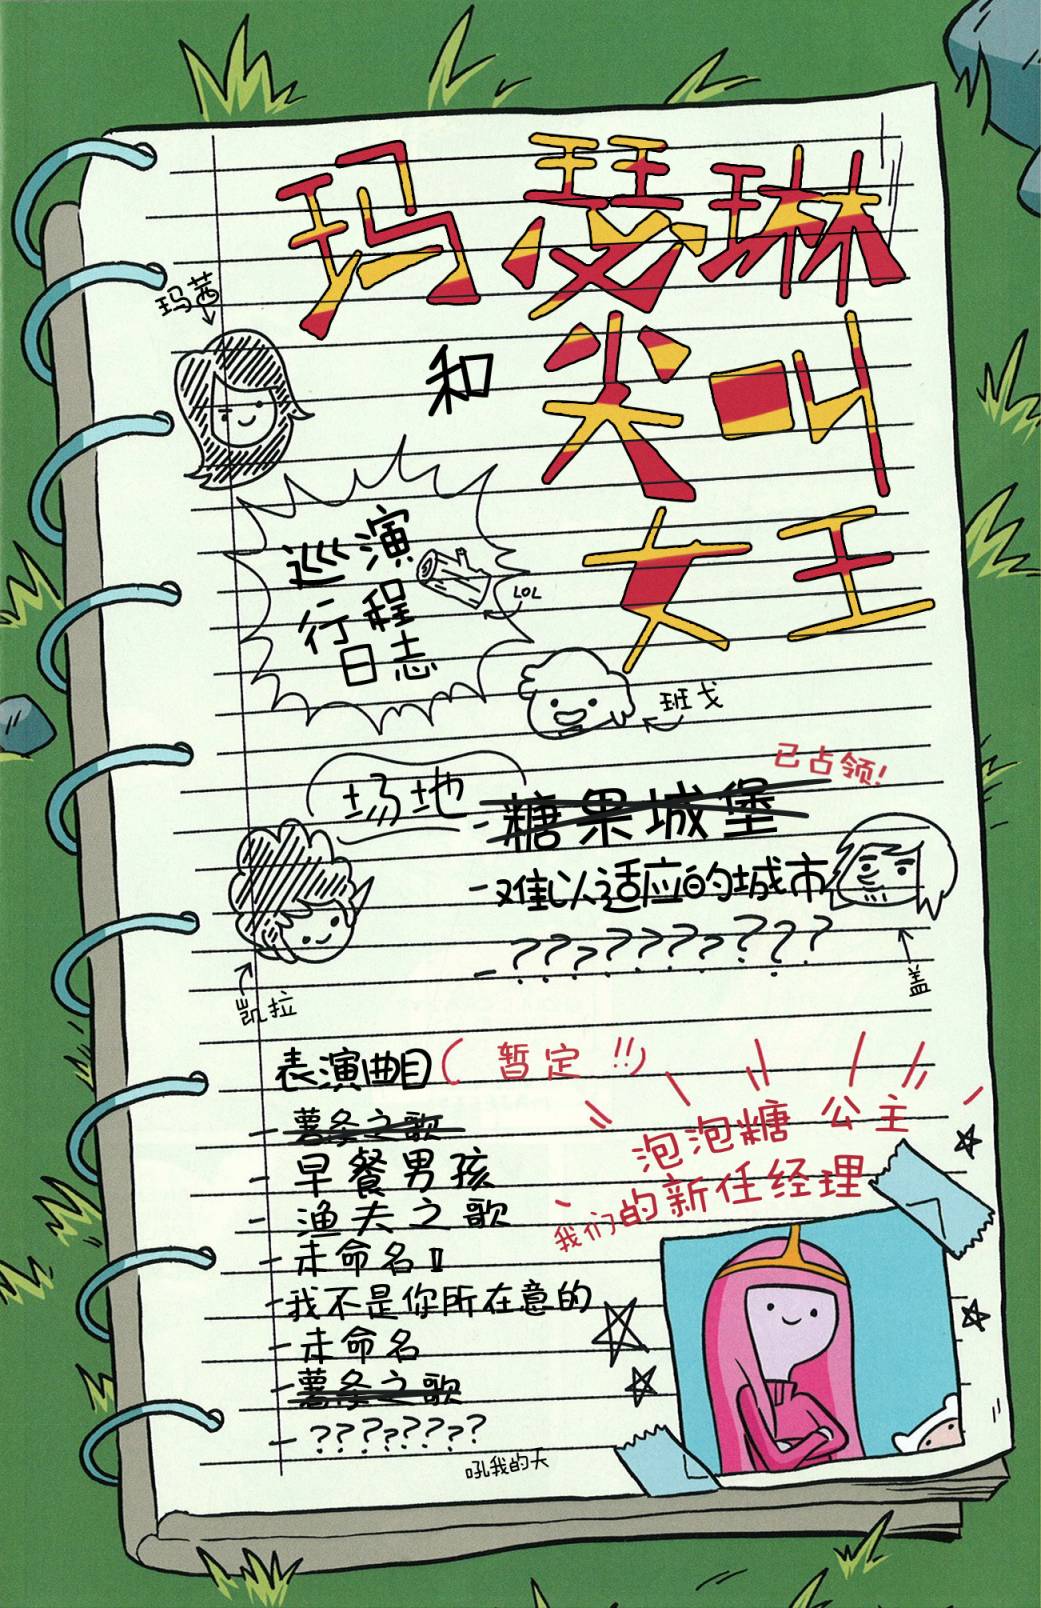 玛瑟琳
玛茜
和 尖叫
女王
巡演
行程
日志
LOL
班戈
场地
已占领!
-糖果城堡
-难以适应的城市
-??????????
凯拉
盖
表演曲目(暂定!!)
-薯条之歌
-早餐男孩
-渔夫之歌
-未命名Ⅱ
-我不是你所在意的
-未命名
-薯条之歌
-????????
泡泡糖 公主
我们的新任经理
吼我的天